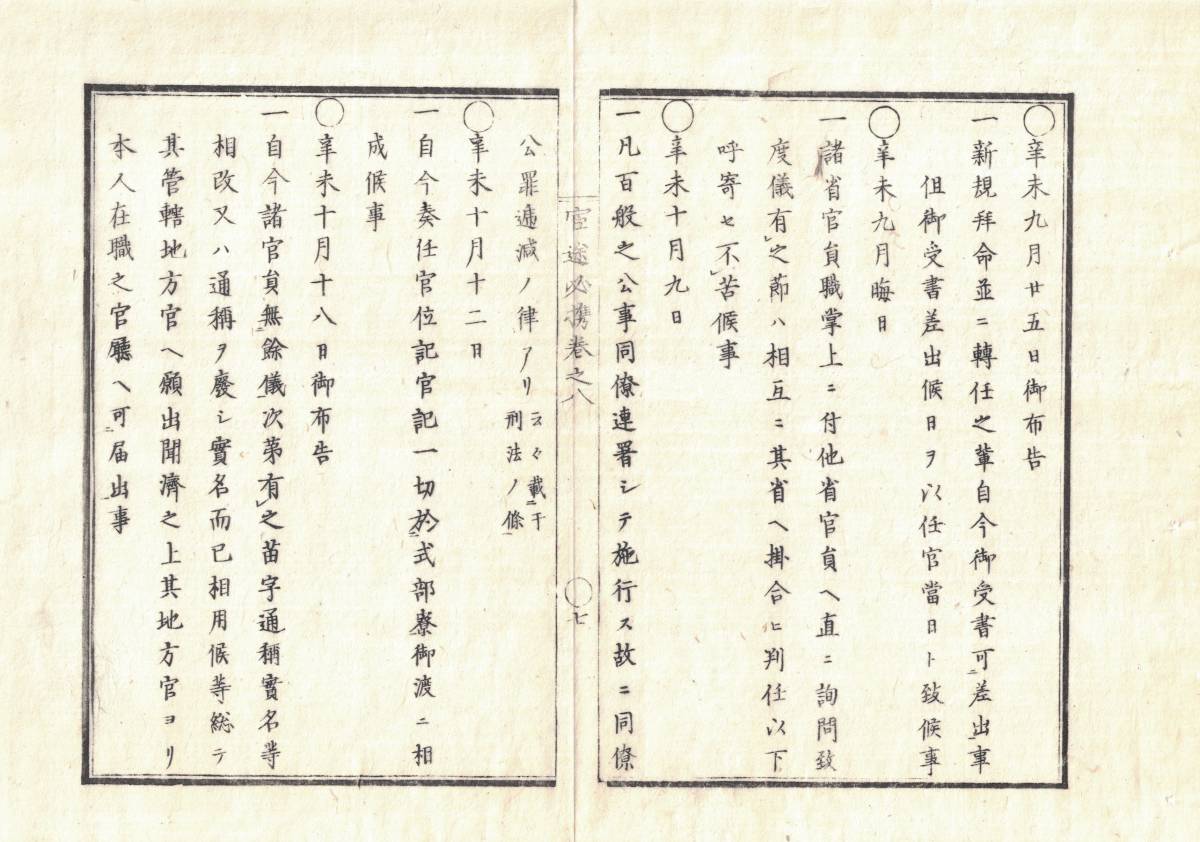 ◯辛未九月廿五日御布告
一新規拜命並ニ轉任之輩自今御受書可ニ差出一事
但御受書差出候日ヲ以任官當日ト致候事
◯辛未九月晦日
一諸省官員職掌上ニ付他省官員ヘ直ニ詢問致
度儀有レ之節ハ相互ニ其省ヘ掛合ヒ判任以下
呼寄セ不レ苦候事
◯辛未十月九日
一凡百般之公事同僚連署シテ施行ス故ニ同僚
官途必携卷之八
◯七
公罪逓減ノ律アリ云々載ニ于
刑法ノ條一
◯辛未十月十二日
一自今奏任官位記官記一切於ニ式部寮一御渡ニ相
成候事
◯辛未十月十八日御布告
一自今諸官員無ニ餘儀一次第有レ之苗字通稱實名等
相改又ハ通稱ヲ廢シ實名而已相用候等総テ
其管轄地方官ヘ願出聞濟之上其地方官ヨリ
本人在職之官廳ヘ可ニ届出一事